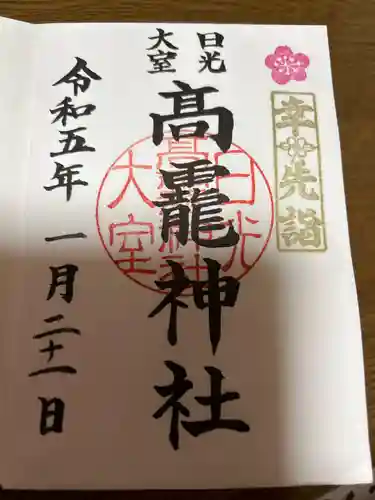 幸先詣
日光
大室
高龗神社
日光
大室
高龗神社
令和五年 一月二十一日